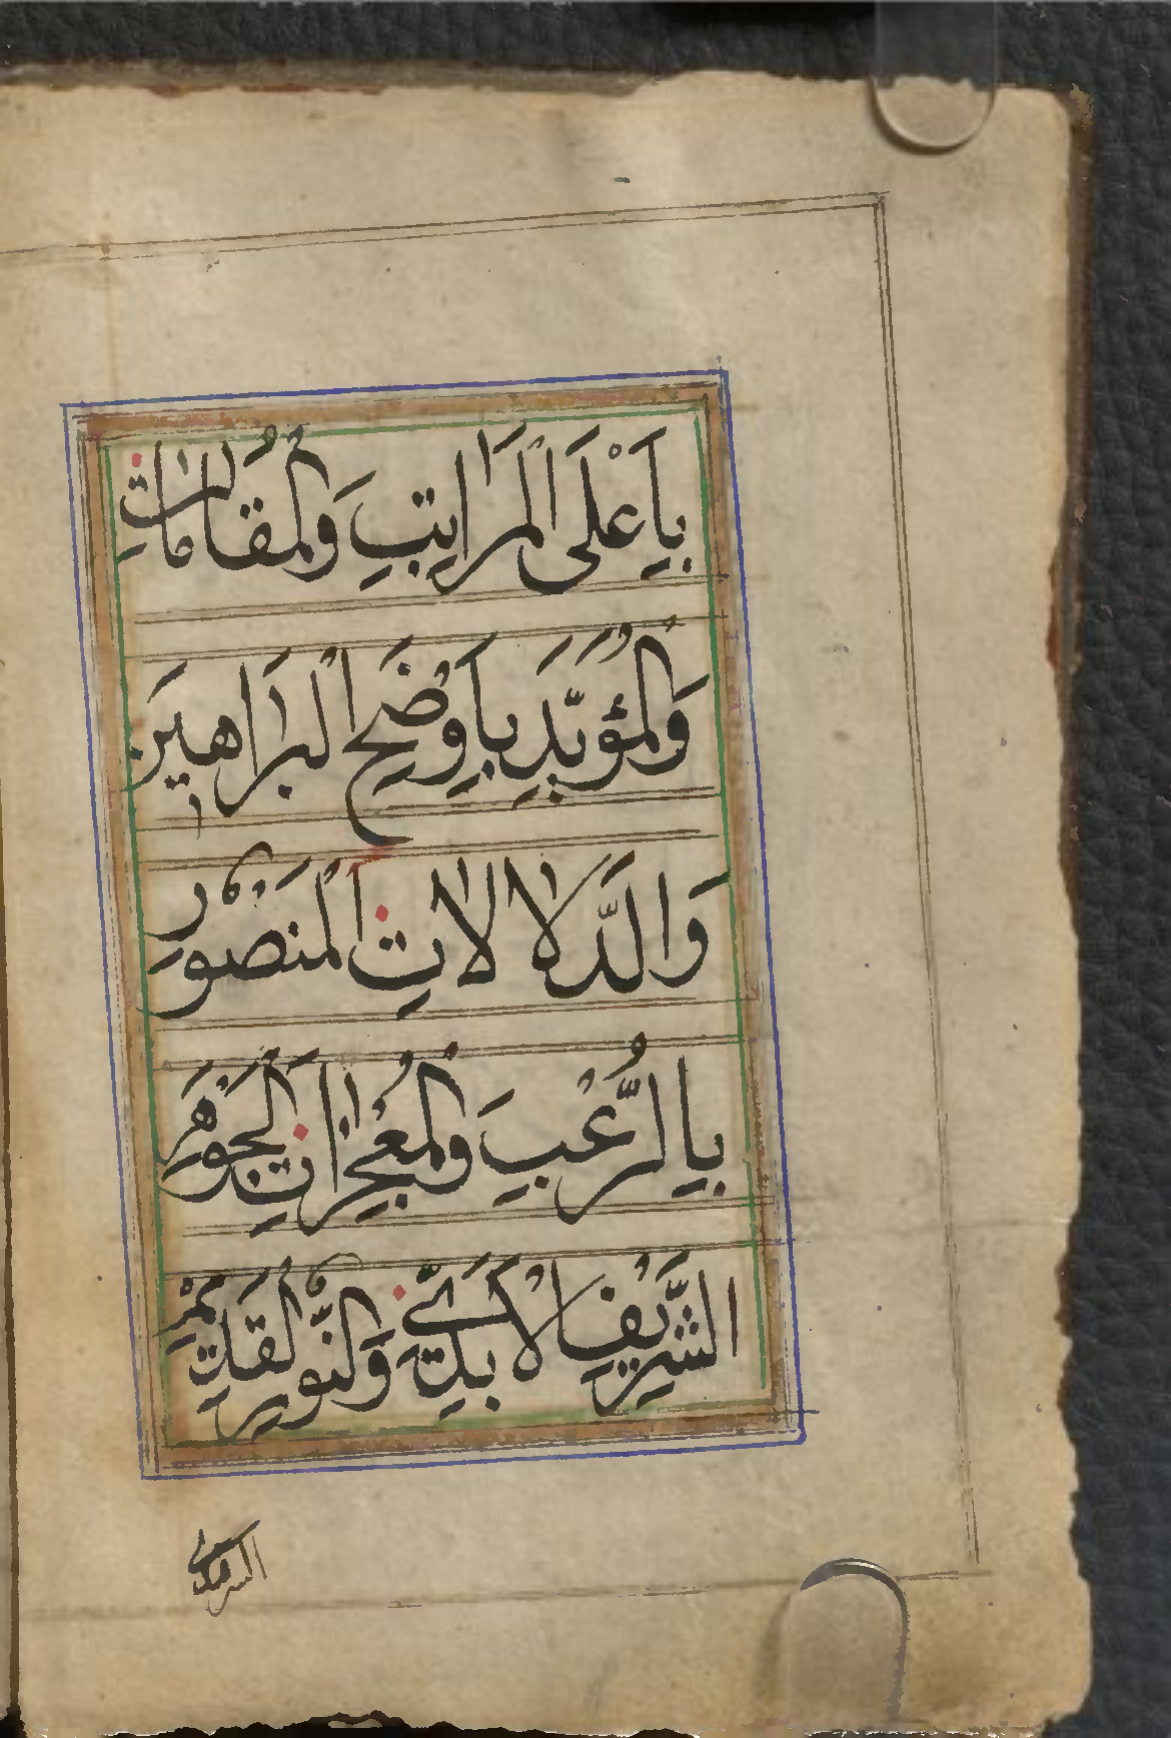 بِاَعْلَى الْمَرَاتِبِ وَالْمُقَامَاتِ
وَالْمُؤَيَّدِ بِاَوْضَحِ الْبَرَاهِينَ
وَالدَّلَالَاتِ الْمَنْصُورِ
بِالرُّعْبِ وَالْمُعْجِزَاتِ الْجَوْهَرِ
الشَّرِيفِ الْاَبَدِيِّ وَالنُّورِ الْقَدِيمِ
السرمدى